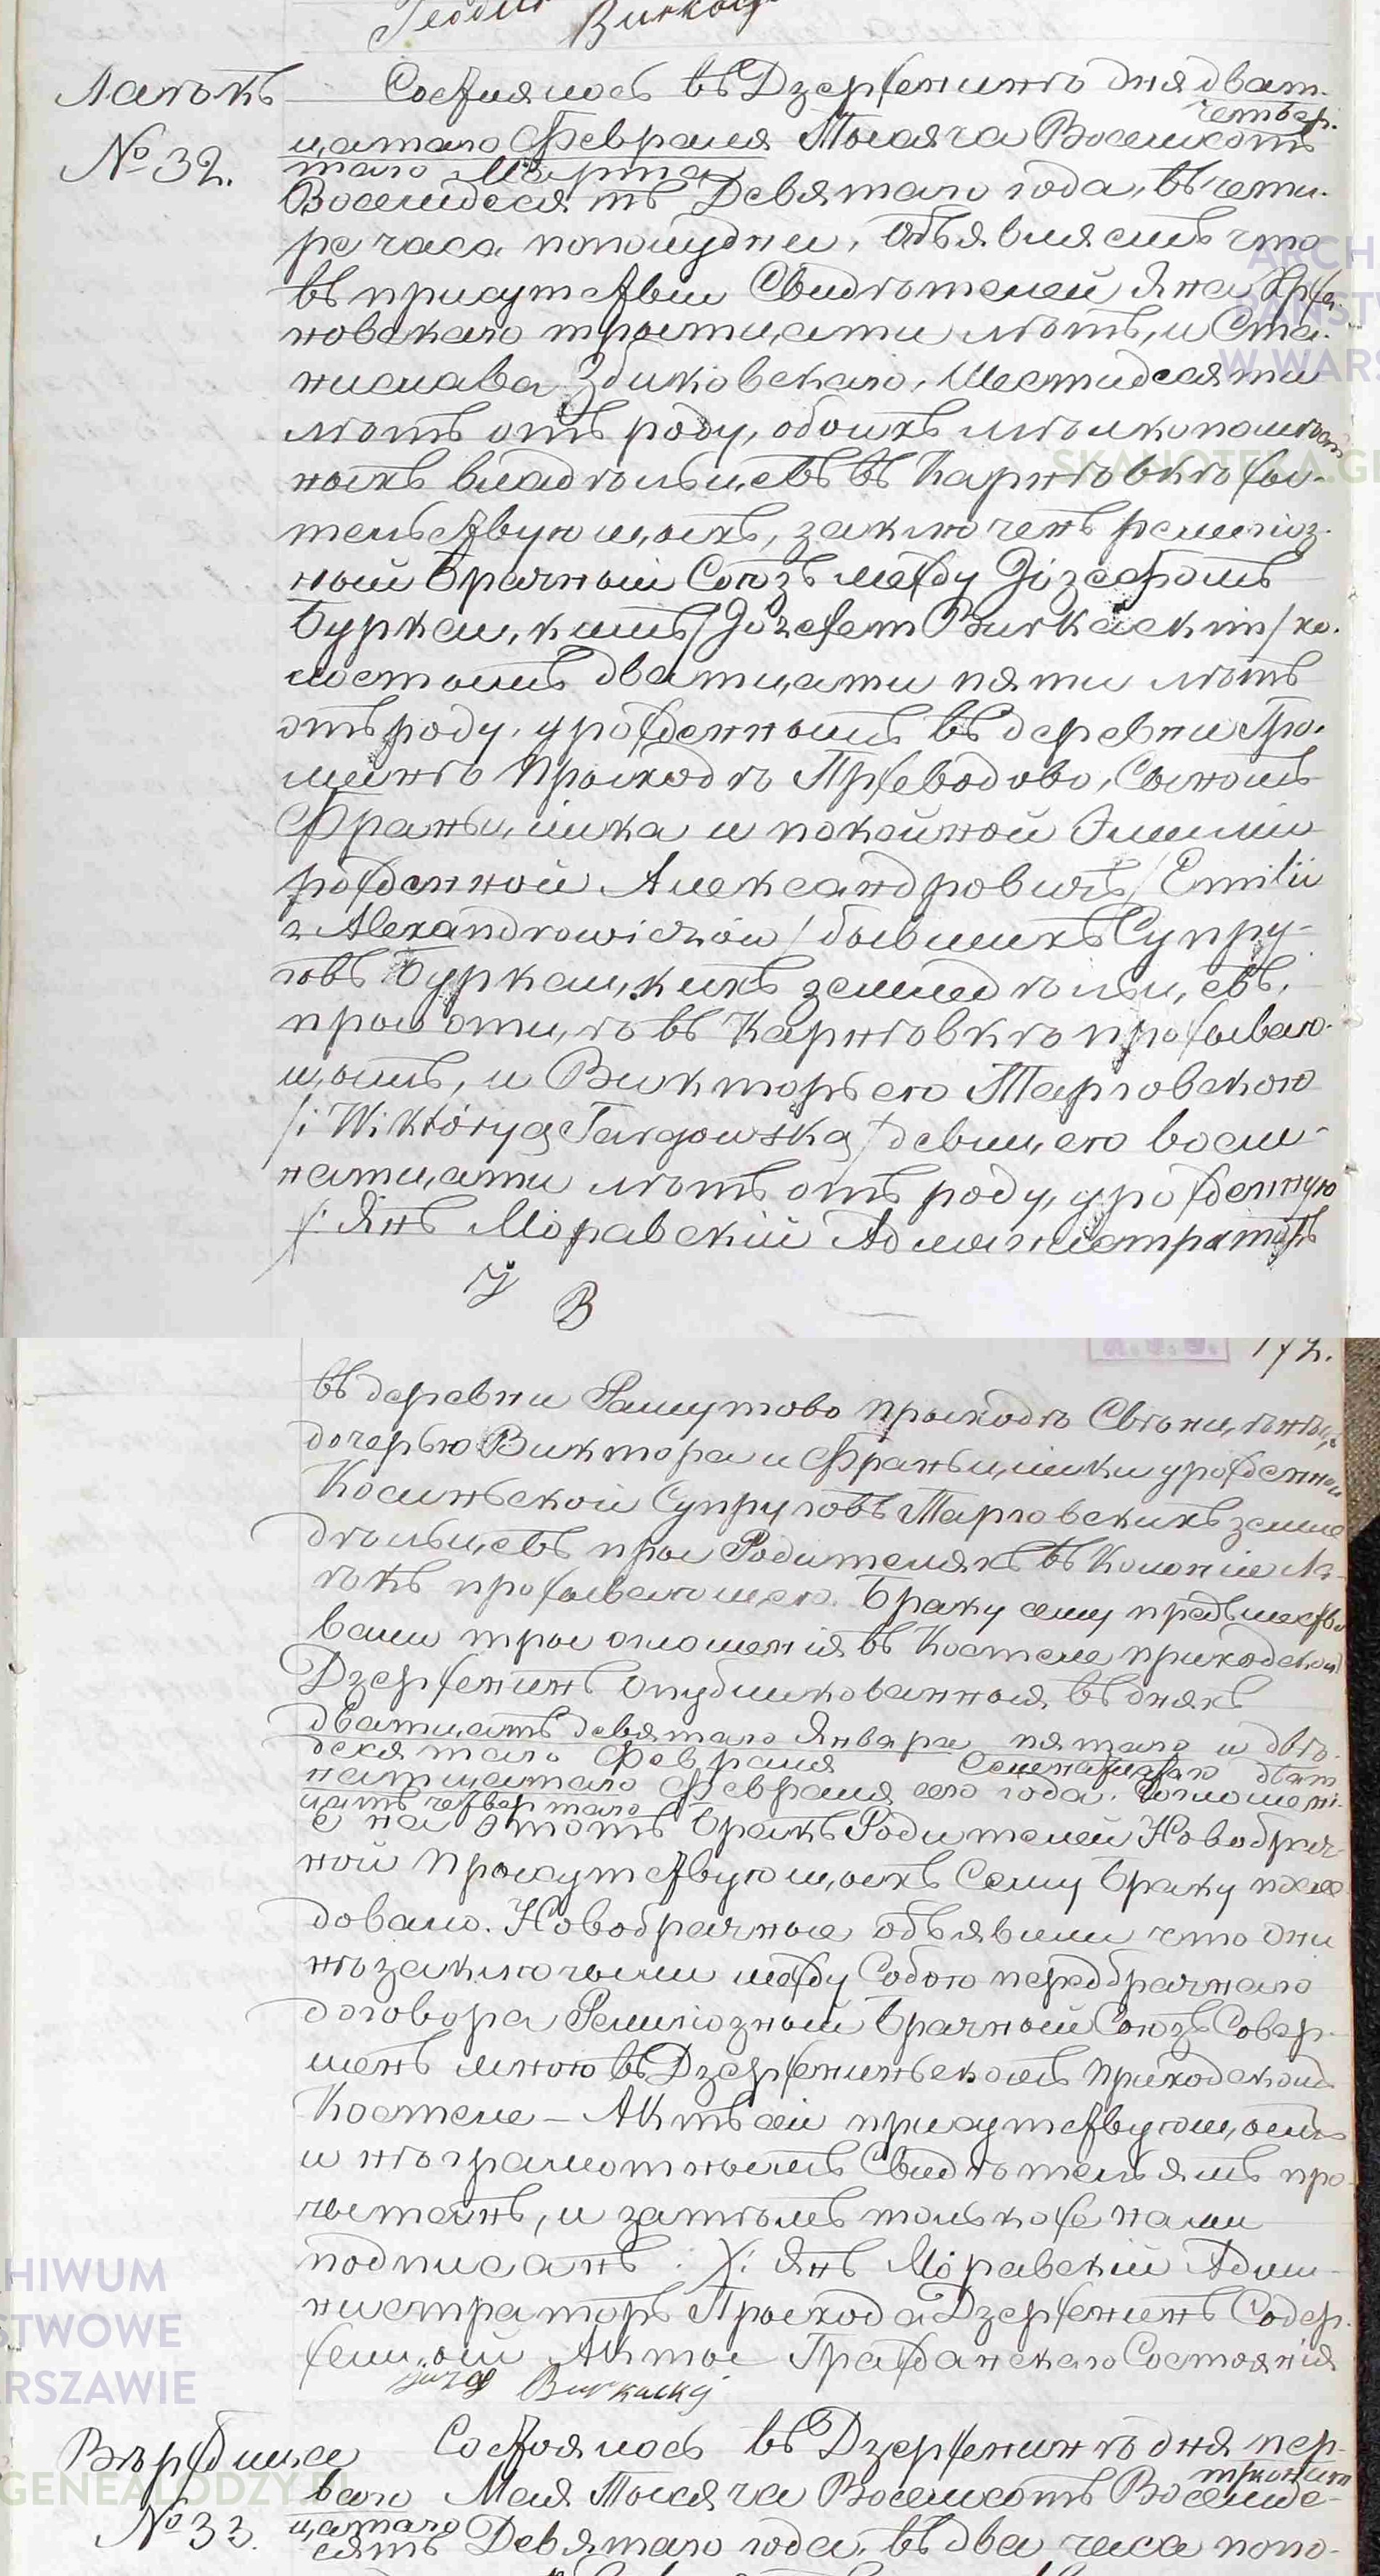 Лагокъ
№ 32.
Состоялось въ Дзерженинѣ дня двад-
цатаго Февраля Тысяча Восемсотъ
четвер-
таго Марта
Восемдесятъ Девятаго года, въ четы-
ре часа пополудни, Объявляемъ что
въ присутствіи Свидѣтелей Яна
новскаго тритцати лѣтъ, и Ста-
нислава Збиковскаго, Шестидесяти
лѣтъ отъ роду, обоихъ мѣлкопомѣст
ныхъ владѣльцевъ въ Карнѣовкѣ жы-
тельствующыхъ, заключенъ религіоз-
ный брачный Союзъ между Іозефомъ
Буркацкимъ /Józefem Burkackim/ хо-
лостымъ дватцати пяти лѣтъ
отъ роду, урожденнымъ въ деревни Гро-
мынѣ Прыходѣ Пржеводово, Сыномъ
Франьцишка и покойной Эмиліи
рожденной Александровичъ /Emilii
z Alexandrowiczów/ бывшихъ Супру-
говъ Буркацкихъ земледѣльцевъ,
при отцѣ въ Карнѣовкѣ прожываю-
щымъ, и Викторьею Тарговскою
/: Wiktoryą Targowską / девицею восем-
натцати лѣтъ отъ роду, урожденную
/: Янъ Моравскій Администраторъ
J B
172.
въ деревни Рашутово прыходѣ
дочерью Виктора и Франьцишки урожденной
Косиньской Супруговъ Тарговскихъ земле
дѣльцевъ при Родителяхъ въ Колоніи Ла-
гокъ прожывающею. Браку сему предшество
вали три оглошенія въ Костеле приходской
Дзерженинъ опубликованныя въ дняхъ
дватцать девятаго Января пятаго и двѣ-
десятаго Февраля Семнатцатаго дват
натцатаго Февраля сего года. Соглошені-
цать четвертаго
е на этотъ Бракъ Родителей Новобрач-
ной Присутствующыхъ Сему браку послѣ
довало. Новобрачные объявили что они
нѣзаключыли между Собою передбрачнаго
договора Религіозный брачный Союзъ Совер-
шенъ мною въ Дзержениньскомъ приходскомъ
Костеле – Актъ сей присутствующымъ
и нѣграмотнымъ Свидѣтельямъ про-
чытанъ, и затѣмъ только же нами
подписанъ. /: Янъ Моравскій Адми-
нистраторъ Прыхода Дзерженинъ Содер-
жащый Акты Гражданскаго Состоянія
Burkacky
№ 33.
Состоялось въ Дзерженинѣ дня пер-
ваго Мая Тысяча Восемсотъ Восемде-
тринат
цатаго
сятъ Девятаго года, въ два часа попо-
ARCHIWUM
PAŃSTWOWE
W WARSZAWIE
SKANOTEKA.GENEALODZY.PL